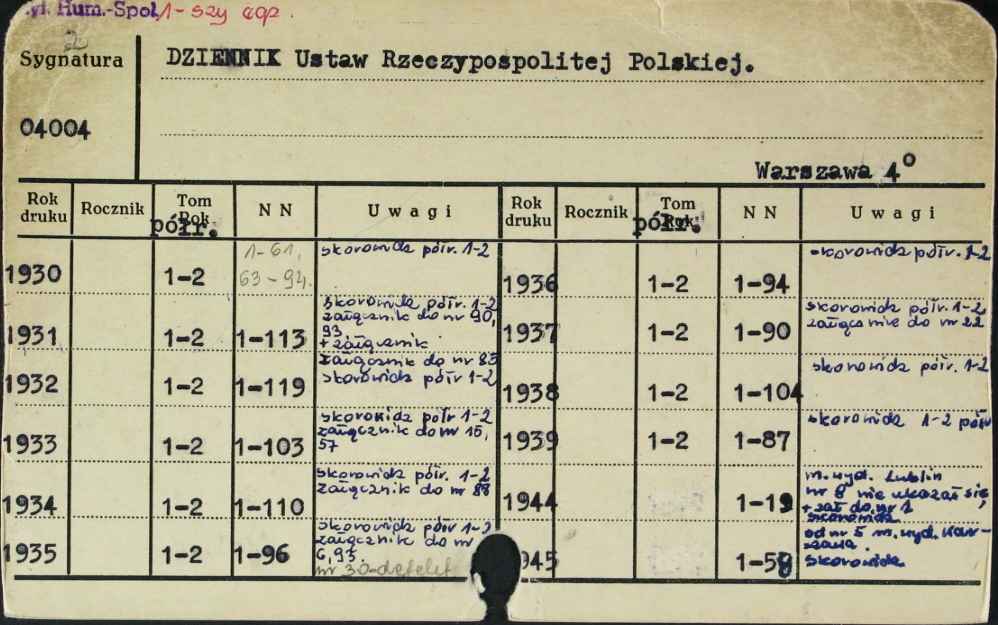 Hum.-Społ. 1-szy egz.
2
Sygnatura
DZIENNIK Ustaw Rzeczypospolitej Polskiej.
04004
Warszawa 4°
Rok druku Rocznik Tom Rok półr. N N Uwagi
1930 1-2 1-61, 63-94. skorowidz półr. 1-2
1931 1-2 1-113 skorowidz półr. 1-2
załącznik do nr 90,
93
+ załącznik
1932 1-2 1-119 załącznik do nr 83
skorowidz półr 1-2
1933 1-2 1-103 skorowidz półr 1-2
załącznik do nr 15,
57
1934 1-2 1-110 skorowidz półr. 1-2
załącznik do nr 88
1935 1-2 1-96 skorowidz półr 1-2
załącznik do nr
6, 93.
nr 30-defekt
Rok druku Rocznik Tom Rok półr. N N Uwagi
1936 1-2 1-94 skorowidz półr. 1-2
1937 1-2 1-90 skorowidz półr. 1-2
załącznik do nr 22
1938 1-2 1-104 skorowidz półr. 1-2
1939 1-2 1-87 skorowidz 1-2 półr
1944 1-19 m. wyd. Lublin
nr 8 nie ukazał się,
+ zał do nr 1
skorowidz
945 1-59 od nr 5 m. wyd. War-
szawa.
skorowidz